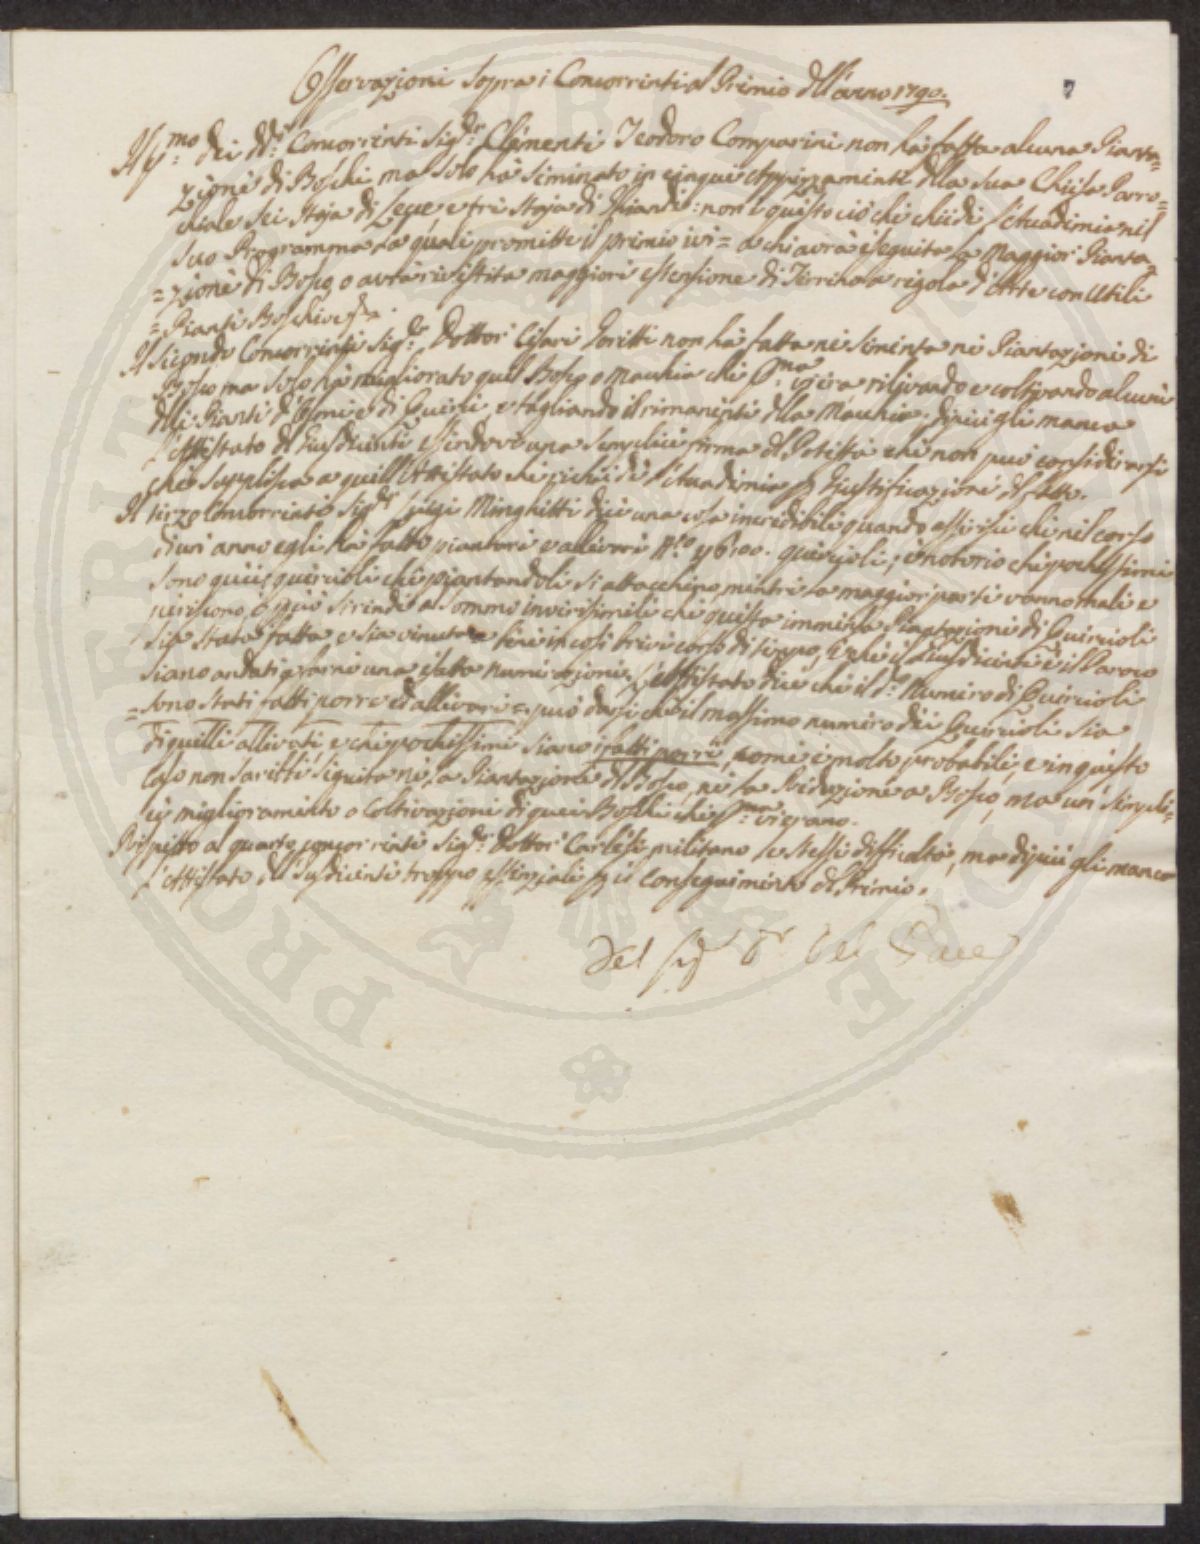 Osservazioni sopra i Concorrenti al Premio dell'anno 1790.
7
Il p.mo dei dd.i Concorrenti Sig.r Clemente Teodoro Comparini non hà fatta alcuna Pianta=
zione di Boschi, ma solo hà seminato in cinque Appezzamenti della sua Chiesa Parro=
chiale sei staja di Leccie e tre staja di Ghiande: non è questo ciò che chiede l'Accademia nel
suo Programma la quale promette il premio ivi = a chi avrà eseguita la Maggior Pianta
= zione di Bosco, o avrà rivestita maggiore estensione di Terreno a regola d'Arte con Utili
= Piante Boschive
Il secondo Concorrente Sig.r Dottor Cesare Goretti non hà fatta ne sementa ne Piantazione di
Bosco ma solo hà migliorato quel Bosco o Macchia che p.ma vi era rilevando e coltivando alcune
delle Piante d'Ornie e di Querci e tagliando il rimanente della Macchia: di più gli manca
l'Attestato del Giusdicente essendovi una semplice firma del Potestà che non può considerarsi
che supplisca a quell'Attestato che richiede l'Accademia p Giustificazione del fatto.
Il terzo Concorrente Sig.r Luigi Minghetti dice una cosa incredibile quando asserisce che nel corso
di un anno egli hà fatto piantare e allevare N.o 7600. quercioli; è notorio che pochissimi
sono quei quercioli che piantandoli si attacchino, mentre la maggior parte vanno male e
periscono, e più si rende a sommo inverisimile che questa immensa Piantazione di Quercioli
sia stata fatta e sia venuta a bene in così breve corso di tempo, e che il Giusdicente e il Paroco
siano andati a farne una esatta numerazione. L'Attestato dice che il d.o Numero di Quercioli
= sono stati fatti porre ed allevare = può darsi che il massimo numero dei Quercioli sia
di quelli allevati e che pochissimi siano i fatti porre, come è molto probabile, e in questo
caso non sarebbe seguita nè la Piantazione del Bosco, nè la Riduzione a Bosco, ma un sempli=
ce miglioramento o Coltivazione di quei Boschi che p.ma vi erano.
Rispetto al quarto concorrente Sig.r Dottor Carlesi militano le stesse difficoltà, ma di più gli manca
l'Attestato del Giusdicente troppo essenziale p il conseguimento del Premio.
Del Sig.r D.r Del Pace